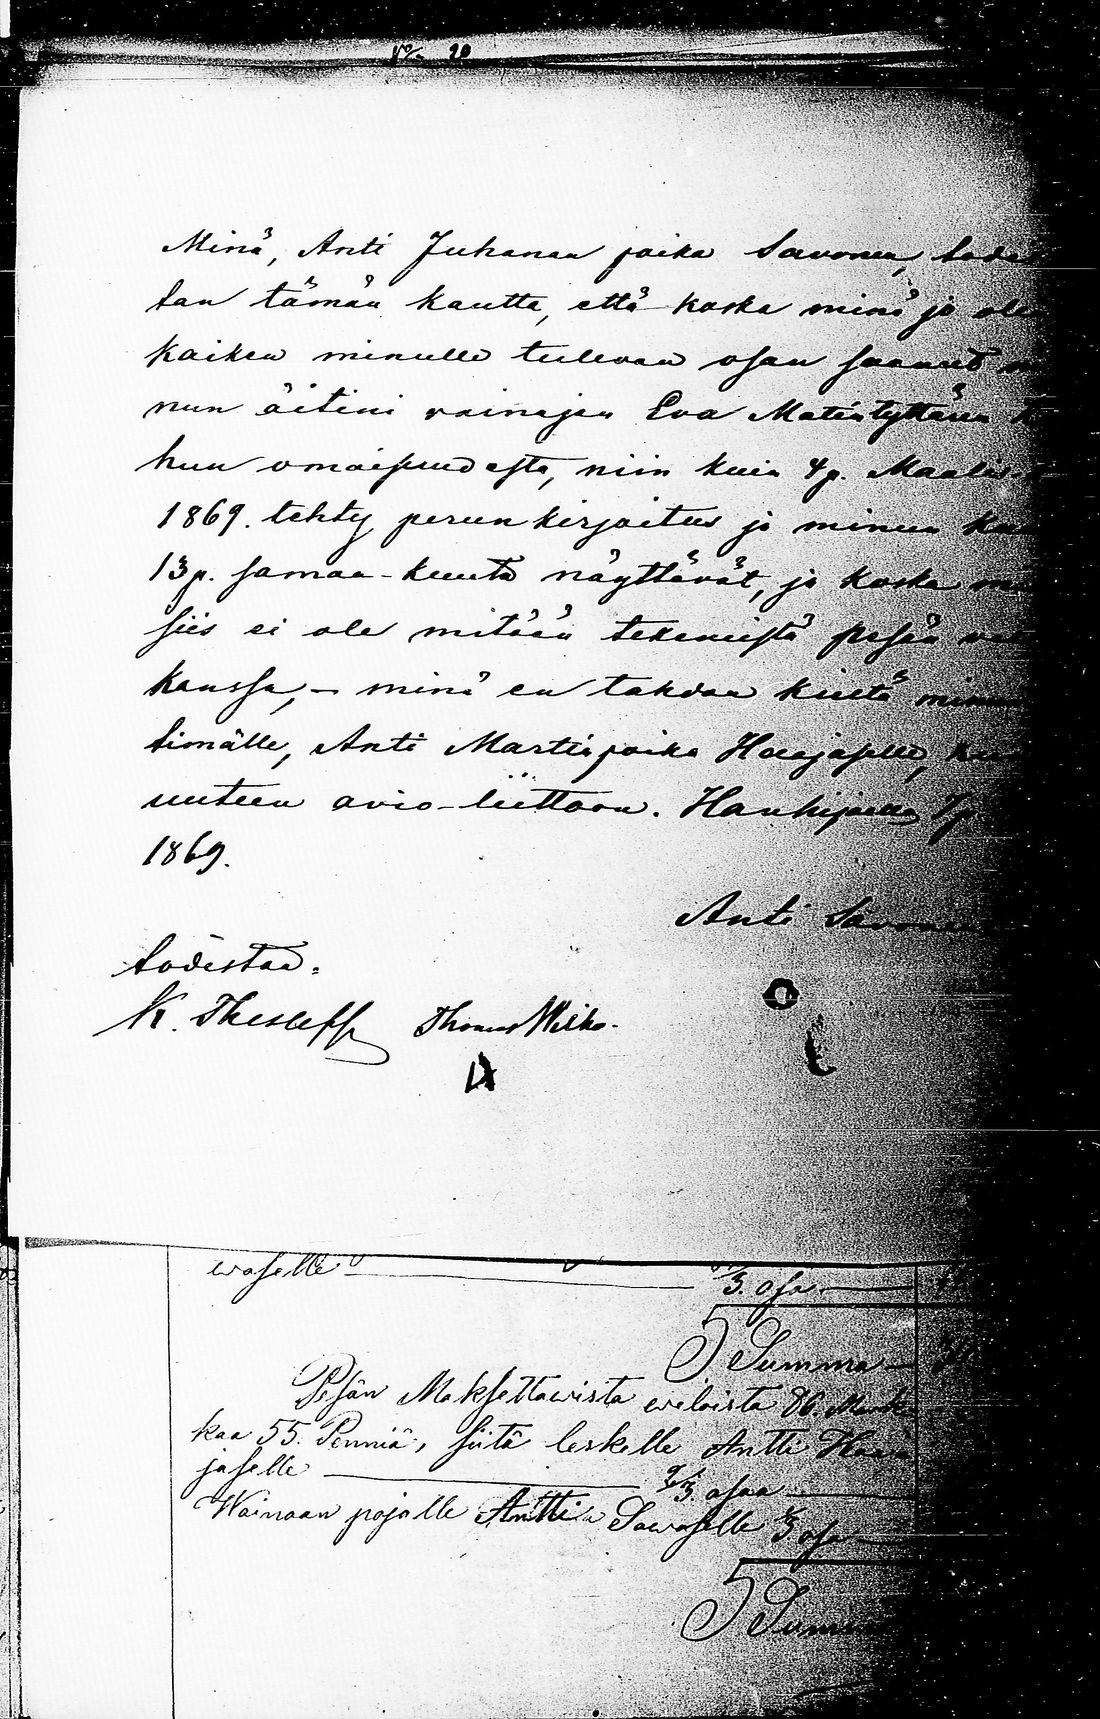 No 20
Minä, Anti Juhanan poika Savonen, toda
tan tämän kautta, että koska minä jo ole
kaiken minulle tulevan osan saanut
nun äitini vainajan Eva Matintyttären
hun omaisuudesta, niin kuin 4p. Maalis
1869. tehty perunkirjoitus ja minun
13p. samaa-kuuta näyttävät, ja koska
siis ei ole mitään tekemistä pesän
kanssa, – minä en tahdon kiistä
simälle, Anti Martinpoika Haajaselle,
uuteen avio-liittoon. Hanhijoella 7p
1869.
Anti Savonen
todistaa:
K. Thesleff Thomas Wilko.
waselle 1/3. osa
Summa
Pesän Maksettawista weloista 86. Mark
kaa 55. Penniä, siitä leskelle Antti Haa
jaselle 2/3. osaa
Wainaan pojalle Antti Sawoselle 1/3 osa
Summa